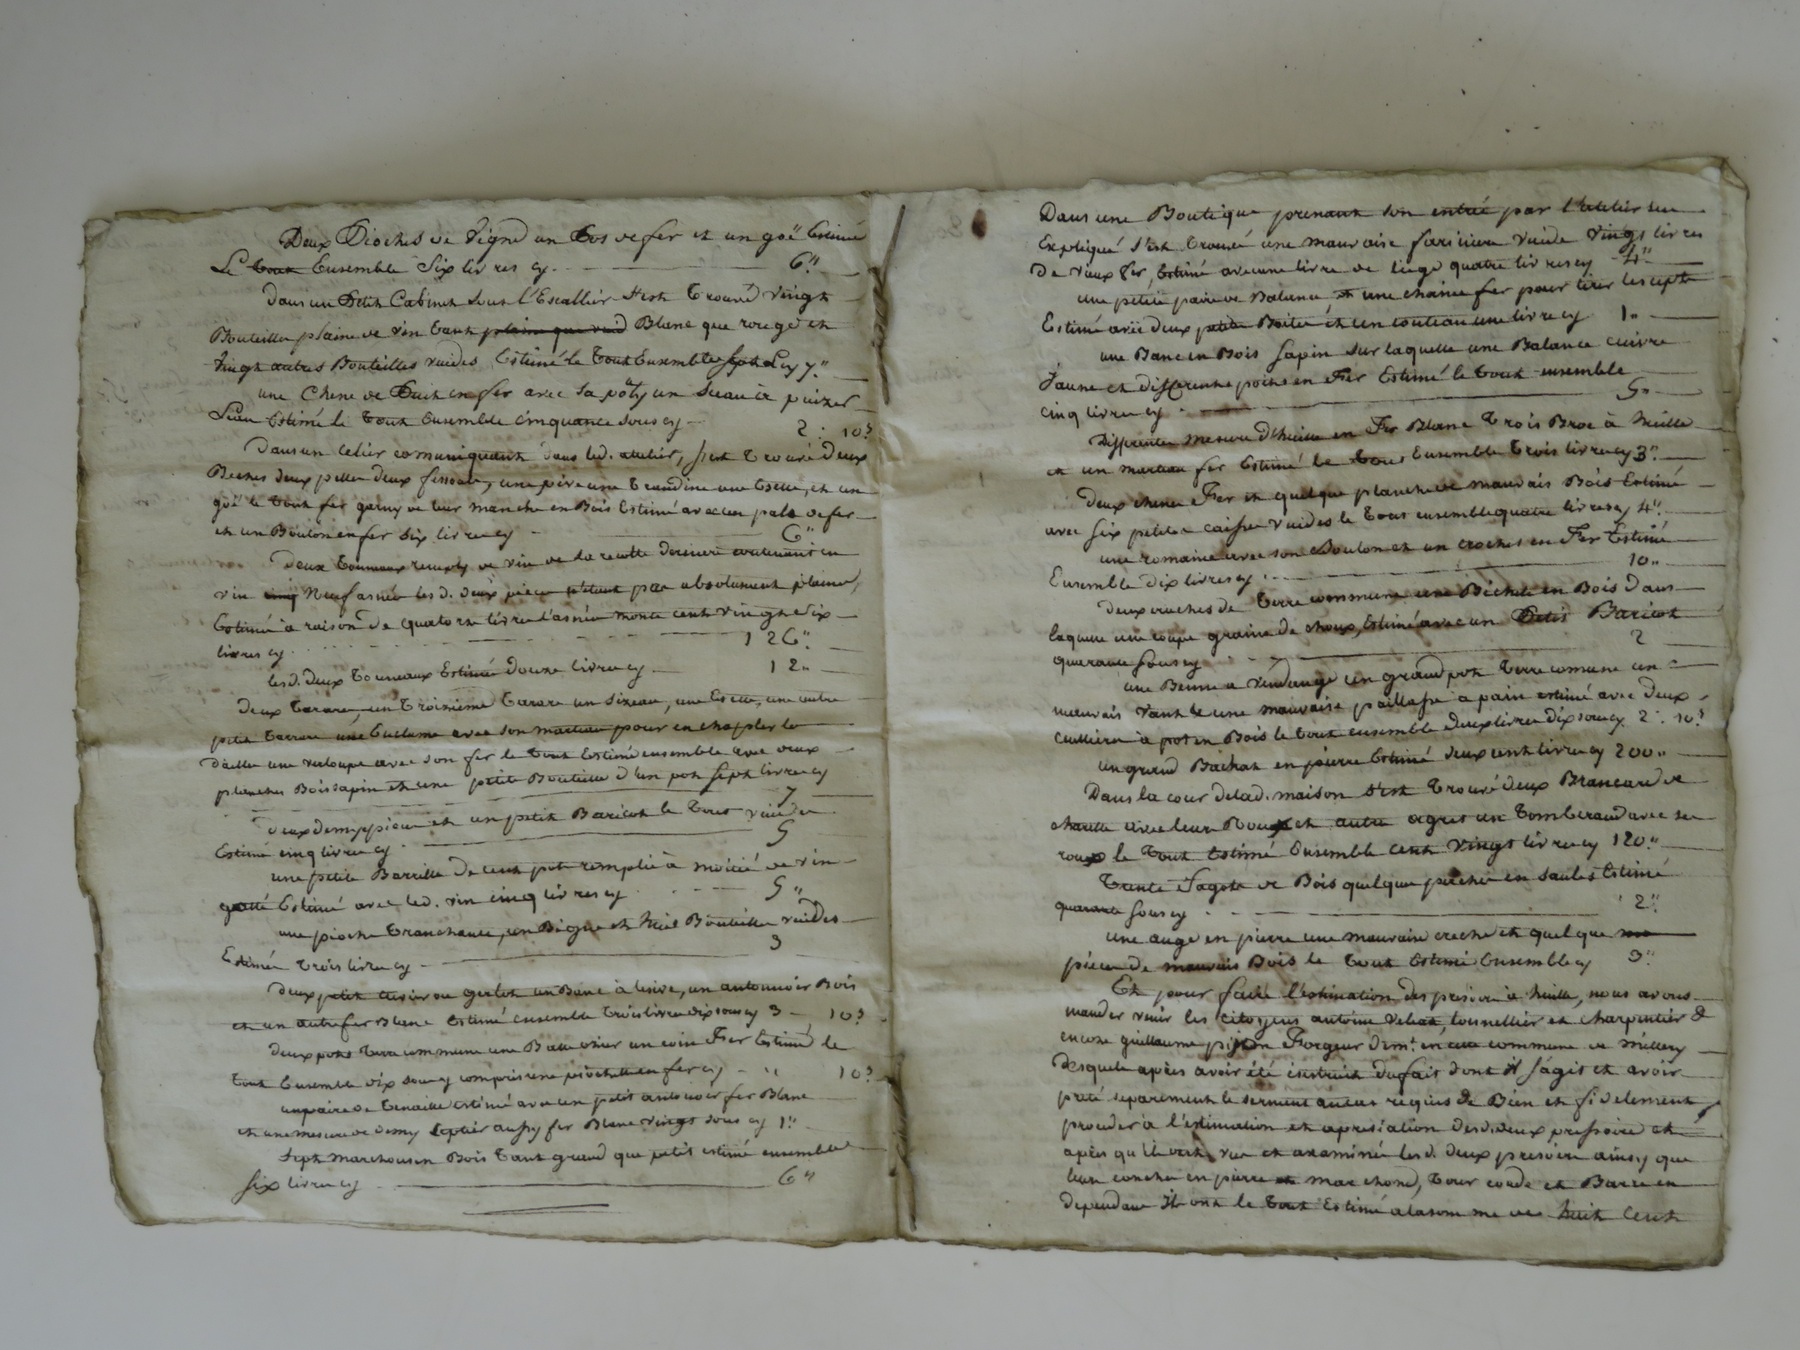 Deux Pioches de Vigne un Bos de fer et un goë Estimé
Le tout Ensemble Six livres cy 6"
Dans un Petit Cabinet sous l'Escallier s'est trouvé vingt
Bouteilles plaine de vin tant plaine que vuid Blanc que rouge et
vingt autres Bouteilles vuides Estimé le tout Ensemble sept L cy 7"
une Chene de Puit en fer avec sa poly un Seau à puizer
L'eau Estimé le tout Ensemble cinquante sous cy 2 : 10s
Dans un Celier comuniquant dans led. atelier, s'est trouvé deux
Beches deux pelles deux fessoirs, une une trandine une Esette, et un
goë le tout fer garny de leur manche en Bois Estimé avec un pale de fer
et un Boulon en fer six livres cy 6"
Deux tonneaux remply de vin de la recolte derniere contenant en
vin cinq Neuf asnée lesd. deux pièces n'étant pas absolument plaine,
Estimé à raison de quatorze livres l'asnée monte cent vingt Six
livres cy 126"
lesd. deux tonneaux Estimé douze livres cy 12"
deux tarare, un troisième tarare un sizeau, une Esette, une autre
petit tarrare une Enclume avec son marteau pour enchapler le
d'ailler une varloupe avec son fer le tout Estimé ensemble avec deux
planches Bois sapin et une petite Bouteille d'un pot sept livres cy
7
deux demy pièces et un petit Baricot le tout vuides
Estimé cinq livres cy 5
une petite Barrille de cent pots remplie à moitié de vin
gatté Estimé avec led. vin cinq livres cy 5"
une pioche tranchante, un Bigue et huit Bouteilles vuides
Estimée trois livres cy 3
deux petit cuvier ou gerlot un Banc à lesive, un antonnoir Bois
et un autre fer Blanc Estimé ensemble trois livres dix sous cy 3 10s
deux pots terre commune une Batte osier un coin Fer Estimé le
tout Ensemble dix sous cy compris une piochette en fer cy " 10s
une paire de tenaille estimé avec un petit antonoir fer Blanc
et une mesure de demy septier aussy fer Blanc vingt sous cy 1"
sept marchous en Bois tant grand que petit estimé ensemble
six livres cy 6"
Dans une Boutique prenant son entrée par l'atelier
Expliqué s'est trouvé une mauvaise farinière vuide vingt livres
de vieux Fer, Estimé avec une livre de liege quatre livres cy 4"
une petite paire de Balance, et une chaine fer pour tirer les
Estimé avec deux petite Boite et un couteau une livre cy 1"
une Banc en Bois sapin sur laquelle une Balance cuivre
Jaune et differente poche en Fer Estimé le tout ensemble
cinq livres cy 5"
Differentes mesure d'huile en Fer Blanc trois Broc à huille
et un marteau fer Estimé le tout Ensemble trois livres cy 3"
deux chene Fer et quelque planche de mauvais Bois Estimé
avec six petites caisse vuides le tout ensemble quatre livres cy 4"
une romaine avec son Boulon et un crochet en Fer Estimé
Ensemble dix livres cy 10"
deux cruches de terre commune une Bichete en Bois dans
laquelle une coupe graine de choux, Estimé avec un Petit Baricot
quarante sous cy 2
une Benne a vendange un grand pot terre comune un
mauvais une mauvaise paillasse a pain estimé avec deux
cuillière à pot en Bois le tout ensemble deux livres dix sous cy 2 : 10s
un grand Bachat en pierre Estimé deux cent livres cy 200"
Dans la cour de lad. maison s'est trouvé deux Brancard de
charette avec leur Roues et autre agres un tomberaud avec ses
roues le tout Estimé Ensemble cent vingt livres cy 120"
trente Fagots de Bois quelque perche en saules Estimé
quarante sous cy 2"
une auge en pierre une mauvaise creche et quelque
pièces de mauvais Bois le tout Estimé Ensemble cy 3"
Et pour faire l'estimation des presoirs à huille, nous avons
mander venir les citoyens antoine Velait, tonnellier et charpentier &
encore guillaume pijeon Forgeur demt. en cette commune de millery
desquels après avoir été instruit du fait dont il s'agit et avoir
preté separement le serment au cas requis de Bien et fidelement
proceder à l'estimation et apresiation desd. deux pressoire et
après qu'ils ont vue et axaminé lesd. deux presoirs ainsy que
leur conches en pierre et marchons, tour corde et Barre en
dependant Ils ont le tout Estimé à la somme de huit cent